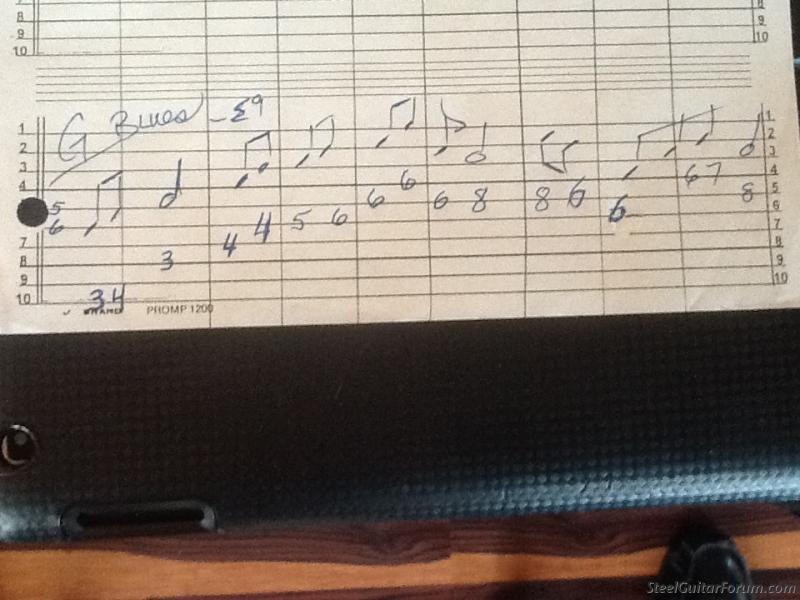 8
9
10
10
G Blues - E9
1
2
3
4
5
6
7
8
9
10
5
6
3 4
3
4
4
5 6
6
6
6 8
8 6
6
6 7
8
1
2
3
4
5
6
7
8
9
10
PROMP 1200
SteelGuitarForum.com